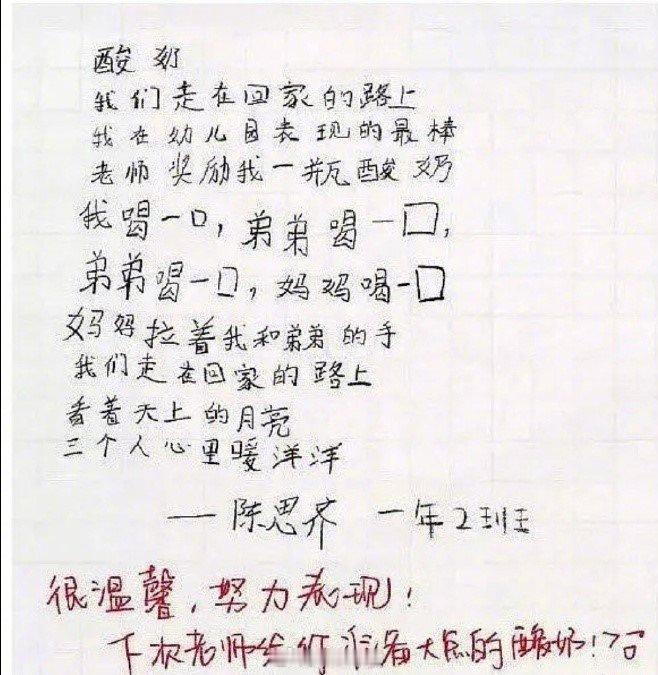 酸奶
我们走在回家的路上
我在幼儿园表现的最棒
老师奖励我一瓶酸奶
我喝一口，弟弟喝一口，
弟弟喝一口，妈妈喝一口
妈妈拉着我和弟弟的手
我们走在回家的路上
看着天上的月亮
三个人心里暖洋洋
——陈思齐 一年2班
很温馨，努力表现！
下次老师给你准备大点的酸奶！